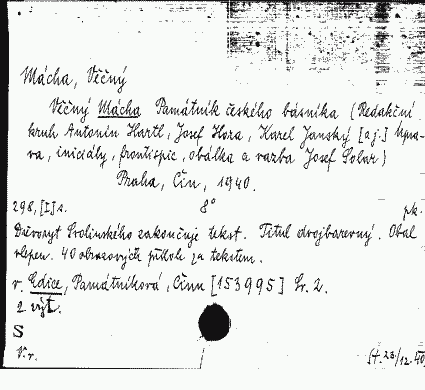 Mácha, Věčný
Věčný Mácha Památník českého básníka (Redakční
kruh Antonín Hartl, Josef Hora, Karel Janský [a j.] Úpra-
va, iniciály, frontispic, obálka a vazba Josef Solar)
Praha, Čin, 1940.
298, [I] s. 8° pk.
Dřevoryt Svolinského zakončuje tekst. Titul dvojbarevný. Obal
vlepen. 40 obrazových příloh za tekstem.
v. Edice, Památníková, Činu [153995] Sv. 2.
2 výt.
S
V. r. 23/12.40